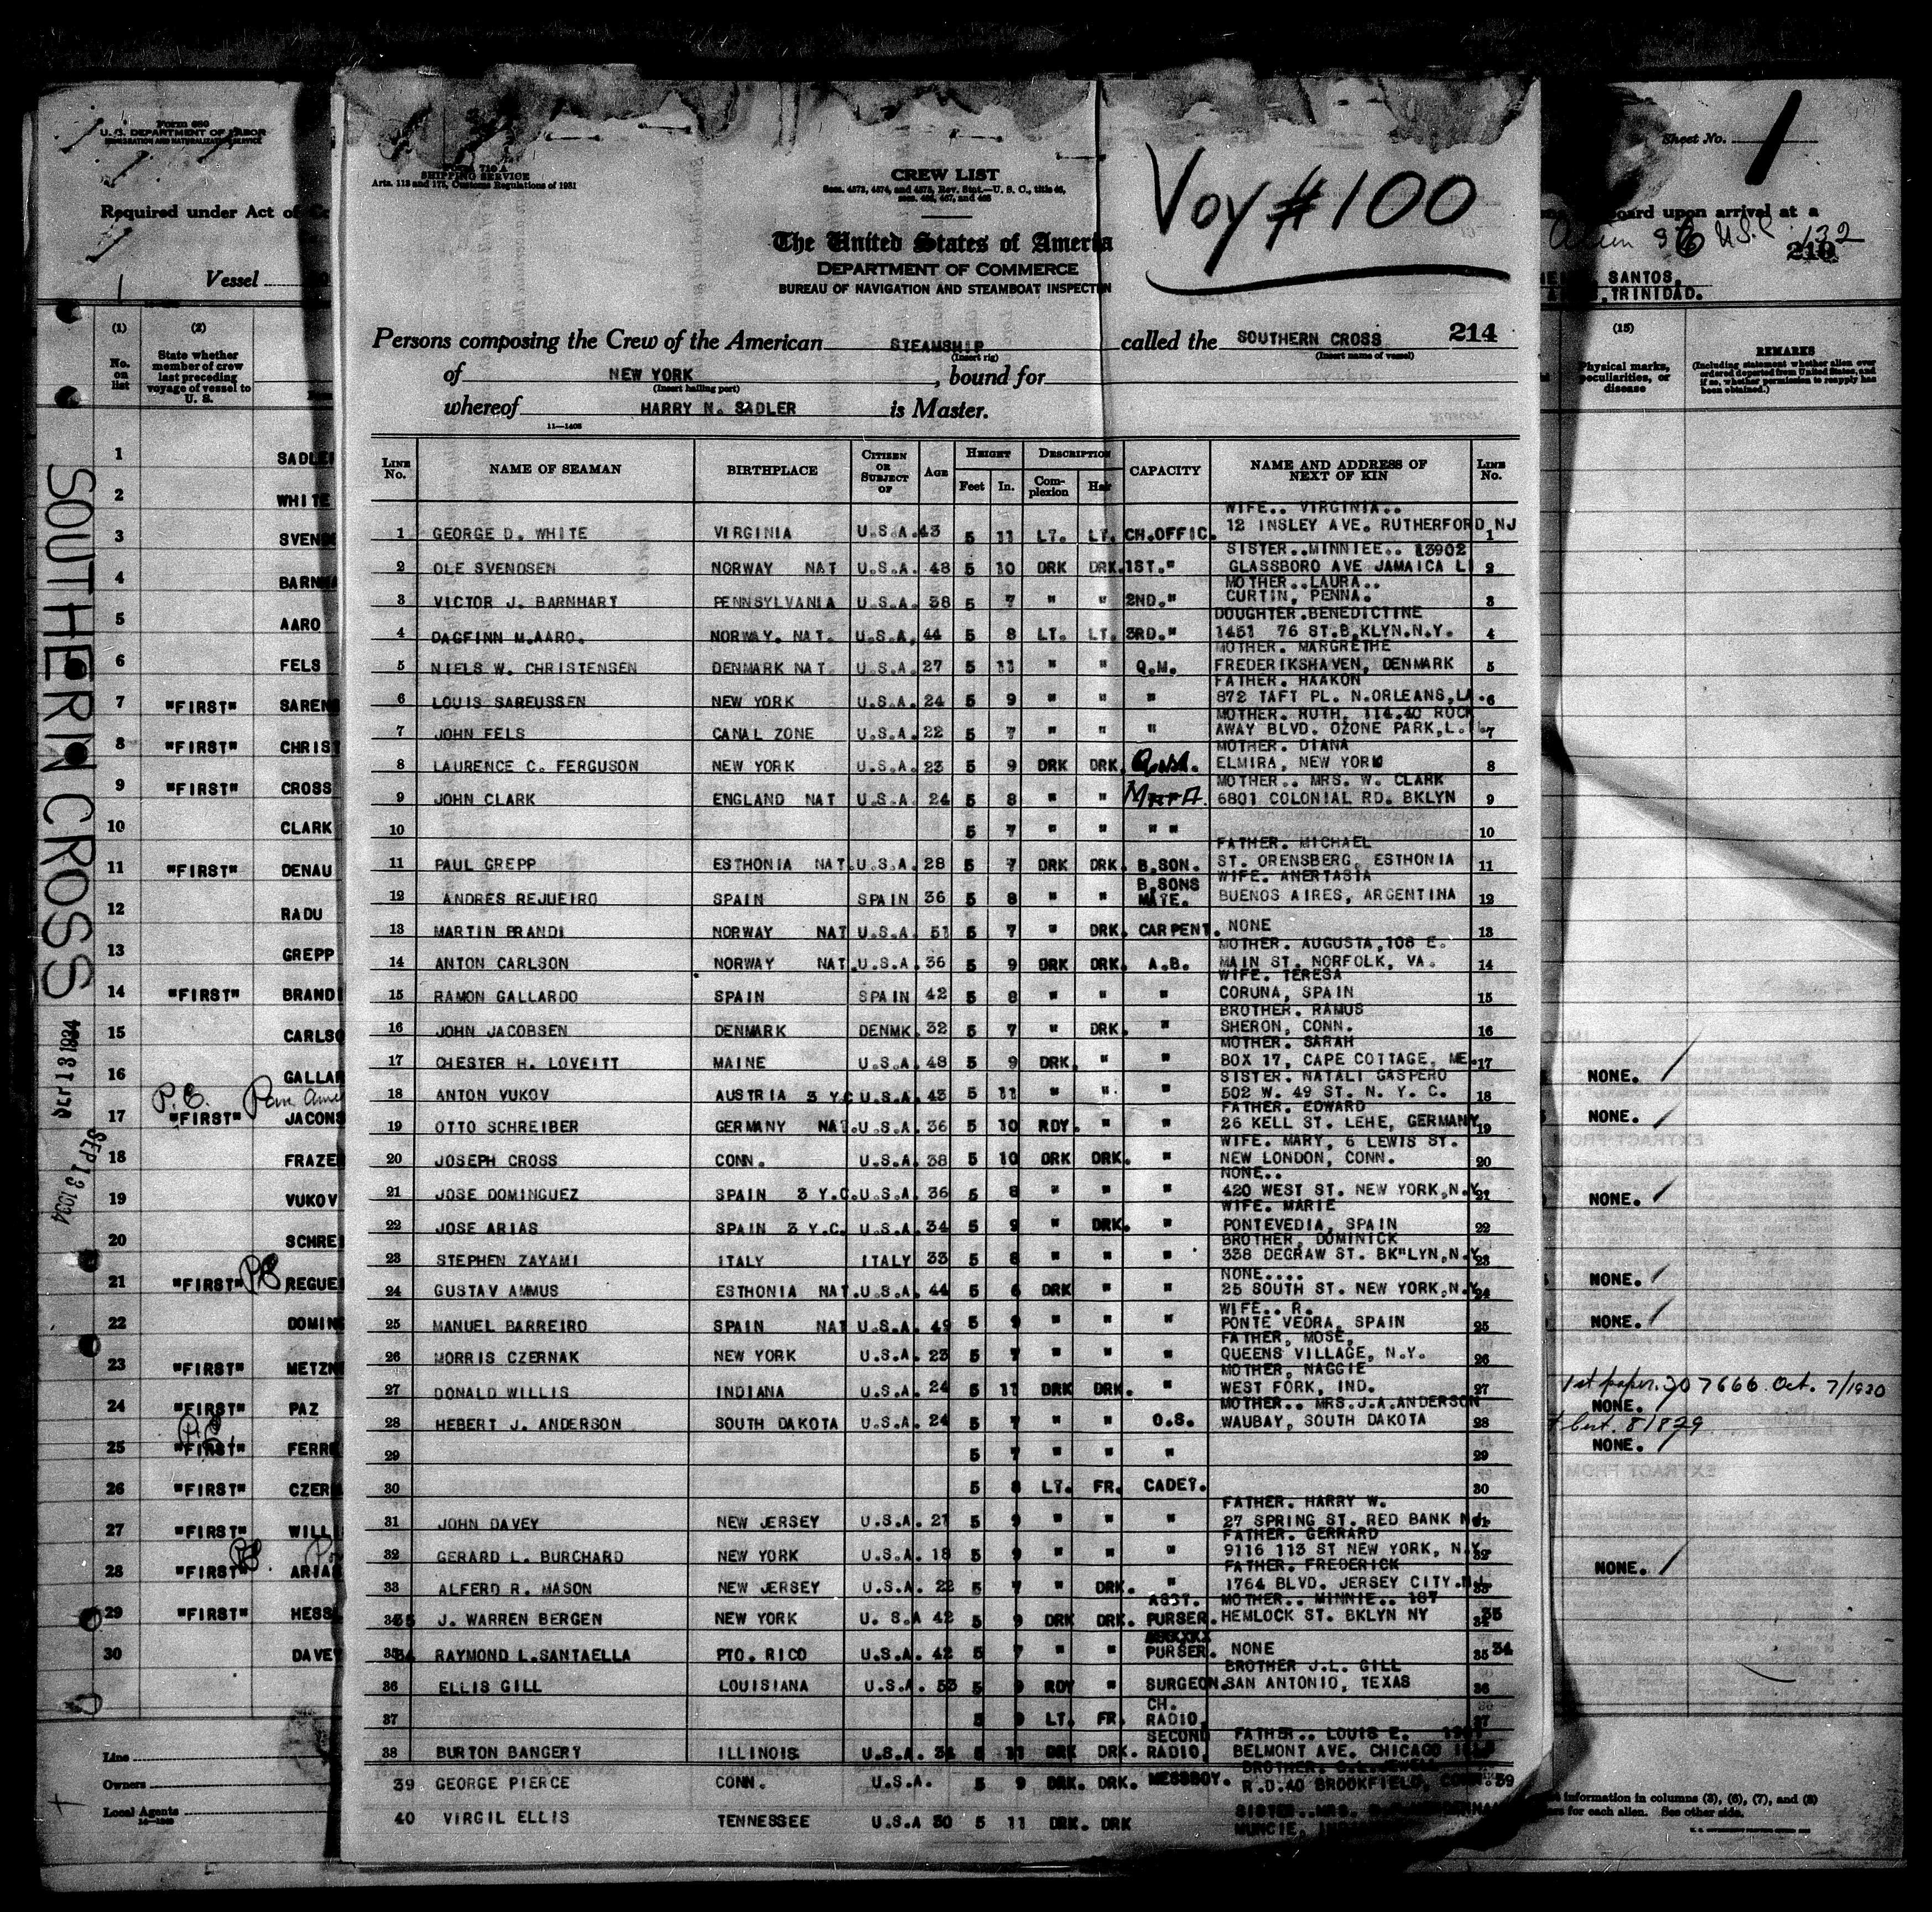 Form 689
U. S. DEPARTMENT OF LABOR
IMMIGRATION AND NATURALIZATION SERVICE
Required under Act of
Vessel
(1) (2)
No. on list
State whether member of crew last preceding voyage of vessel to U. S.
1 SADLE
2 WHITE
3 SVEN
4 BARN
5 AARO
6 FELS
7 "FIRST" SAREN
8 "FIRST" CHRIST
9 "FIRST" CROSS
10 CLARK
11 "FIRST" DENAU
12 RADU
13 GREPP
14 "FIRST" BRANDI
15 CARLSO
16 GALLAR
P.E.
17 "FIRST" JACONS
18 FRAZE
19 VUKOV
20 SCHRE
21 "FIRST" REGUE
22 DOMIN
23 "FIRST" METZN
24 "FIRST" PAZ
25 "FIRST" FERR
26 "FIRST" CZER
27 "FIRST" WILL
28 "FIRST" ARIA
29 "FIRST" HESS
30 DAVE
Line
Owners
Local Agents
SOUTHERN CROSS
SEP 13 1934
FORM 710 A
SHIPPING SERVICE
Arts. 113 and 175, Customs Regulations of 1931
CREW LIST
Secs. 4573, 4574, and 4575, Rev. Stat.—U. S. C., title 46,
secs. 466, 467, and 468
Voy # 100
The United States of America
DEPARTMENT OF COMMERCE
BUREAU OF NAVIGATION AND STEAMBOAT INSPECTION
Persons composing the Crew of the American STEAMSHIP called the SOUTHERN CROSS 214
(Insert rig) (Insert name of vessel)
of NEW YORK, bound for
(Insert hailing port)
whereof HARRY N. SADLER is Master.
11—1405
LINE No. NAME OF SEAMAN BIRTHPLACE CITIZEN OR SUBJECT OF AGE HEIGHT Feet In. DESCRIPTION Complexion Hair CAPACITY NAME AND ADDRESS OF NEXT OF KIN LINE No.
WIFE.. VIRGINIA..
1 GEORGE D. WHITE VIRGINIA U.S.A. 43 5 11 LT. LT. CH.OFFIC. 12 INSLEY AVE. RUTHERFORD,NJ 1
SISTER..MINNIEE.. 13902
2 OLE SVENDSEN NORWAY NAT U.S.A. 48 5 10 DRK DRK. 1ST." GLASSBORO AVE JAMAICA LI 2
MOTHER..LAURA..
3 VICTOR J. BARNHART PENNSYLVANIA U.S.A. 38 5 7 " " 2ND." CURTIN, PENNA. 3
DOUGHTER.BENEDICTINE
4 DAGFINN M.AARO. NORWAY. NAT. U.S.A. 44 5 8 LT. LT. 3RD." 1451 76 ST.B,KLYN.N.Y. 4
MOTHER. MARGRETHE
5 NIELS W. CHRISTENSEN DENMARK NAT U.S.A. 27 5 11 " " Q.M. FREDERIKSHAVEN, DENMARK 5
FATHER. HAAKON
6 LOUIS SAREUSSEN NEW YORK U.S.A. 24 5 9 " " " 872 TAFT PL. N.ORLEANS,LA. 6
MOTHER. RUTH, 114.40 ROCK
7 JOHN FELS CANAL ZONE U.S.A. 22 5 7 " " " AWAY BLVD. OZONE PARK,L.I. 7
MOTHER. DIANA
8 LAURENCE C. FERGUSON NEW YORK U.S.A. 23 5 9 DRK DRK. ELMIRA, NEW YORK 8
MOTHER.. MRS. W. CLARK
9 JOHN CLARK ENGLAND NAT U.S.A. 24 5 8 " " 6801 COLONIAL RD. BKLYN 9
10 5 7 " " " " 10
FATHER. MICHAEL
11 PAUL GREPP ESTHONIA NAT. U.S.A. 28 5 7 DRK DRK. B.SON. ST. ORENSBERG, ESTHONIA 11
WIFE. ANERTASIA
12 ANDRES REJUEIRO SPAIN SPAIN 36 5 8 " " B.SONS MATE. BUENOS AIRES, ARGENTINA 12
13 MARTIN BRANDI NORWAY NAT U.S.A. 51 5 7 " DRK. CARPENT. NONE 13
MOTHER. AUGUSTA,108 E.
14 ANTON CARLSON NORWAY NAT. U.S.A. 36 5 9 DRK DRK. A.B. MAIN ST. NORFOLK, VA. 14
WIFE. TERESA
15 RAMON GALLARDO SPAIN SPAIN 42 5 8 " " " CORUNA, SPAIN 15
BROTHER. RAMUS
16 JOHN JACOBSEN DENMARK DENMK. 32 5 7 " DRK. " SHERON, CONN. 16
MOTHER. SARAH
17 CHESTER H. LOVEITT MAINE U.S.A. 48 5 9 DRK. " " BOX 17, CAPE COTTAGE, ME. 17
SISTER. NATALI GASPERO
18 ANTON VUKOV AUSTRIA 3 Y.C U.S.A. 43 5 11 " " " 502 W. 49 ST. N. Y. C. 18
FATHER. EDWARD
19 OTTO SCHREIBER GERMANY NAT. U.S.A. 36 5 10 RDY. " " 26 KELL ST. LEHE, GERMANY 19
WIFE. MARY, 6 LEWIS ST.
20 JOSEPH CROSS CONN. U.S.A. 38 5 10 DRK DRK. " NEW LONDON, CONN. 20
NONE..
21 JOSE DOMINGUEZ SPAIN 3 Y.C. U.S.A. 36 5 8 " " " 420 WEST ST. NEW YORK,N.Y. 21
WIFE. MARIE
22 JOSE ARIAS SPAIN 3 Y.C. U.S.A. 34 5 9 " DRK. " PONTEVEDIA, SPAIN 22
BROTHER, DOMINICK
23 STEPHEN ZAYAMI ITALY ITALY 33 5 8 " " " 338 DEGRAW ST. BK"LYN,N.Y. 23
NONE....
24 GUSTAV AMMUS ESTHONIA NAT. U.S.A. 44 5 6 DRK " " 25 SOUTH ST. NEW YORK,N.Y. 24
WIFE.. R.
25 MANUEL BARREIRO SPAIN NAT U.S.A. 49 5 9 " " " PONTE VEDRA, SPAIN 25
FATHER, MOSE,
26 MORRIS CZERNAK NEW YORK U.S.A. 23 5 7 " " " QUEENS VILLAGE, N.Y. 26
MOTHER, NAGGIE
27 DONALD WILLIS INDIANA U.S.A. 24 5 11 DRK DRK. " WEST FORK, IND. 27
MOTHER.. MRS.J.A.ANDERSON
28 HEBERT J. ANDERSON SOUTH DAKOTA U.S.A. 24 5 7 " " O.S. WAUBAY, SOUTH DAKOTA 28
29 5 7 " " " 29
30 5 8 LT. FR. CADET. 30
FATHER. HARRY W.
31 JOHN DAVEY NEW JERSEY U.S.A. 21 5 9 " " " 27 SPRING ST. RED BANK NJ. 31
FATHER. GERRARD
32 GERARD L. BURCHARD NEW YORK U.S.A. 18 5 9 " " " 9116 113 ST NEW YORK, N.Y. 32
FATHER. FREDERICK
33 ALFERD R. MASON NEW JERSEY U.S.A. 22 5 7 " DRK. " 1764 BLVD. JERSEY CITY.NJ. 33
MOTHER.. MINNIE.. 187
34 35 J. WARREN BERGEN NEW YORK U. S.A 42 5 9 DRK DRK. ASST. PURSER. HEMLOCK ST. BKLYN NY 34 35
35 34 RAYMOND L.SANTAELLA PTO. RICO U.S.A. 42 5 7 " " PURSER. NONE 35 34
BROTHER J.L. GILL
36 ELLIS GILL LOUISIANA U.S.A. 53 5 9 RDY " SURGEON. SAN ANTONIO, TEXAS 36
37 5 9 LT. FR. CH. RADIO. 37
FATHER.. LOUIS E.
38 BURTON BANGERT ILLINOIS U.S.A. 5 11 DRK DRK. SECOND RADIO. BELMONT AVE. CHICAGO
BROTHER.
39 GEORGE PIERCE CONN. U.S.A. 5 9 DRK. DRK. MESSBOY. R.D.40 BROOKFIELD, CONN. 39
SISTER..MRS.
40 VIRGIL ELLIS TENNESSEE U.S.A 30 5 11 DRK. DRK MUNCIE,
Sheet No. 1
board upon arrival at a
U.S.C. 132
210
SANTOS,
,TRINIDAD.
(15)
Physical marks, peculiarities, or disease
REMARKS
(Including statement whether alien ever ordered deported from United States, and if so, whether permission to reapply has been obtained.)
NONE. /
NONE. /
NONE. /
NONE. /
NONE. /
1st paper. 207666 Oct. 7/1930
NONE.
cert. 81829
NONE. /
NONE. /
information in columns (3), (6), (7), and (8)
for each alien. See other side.